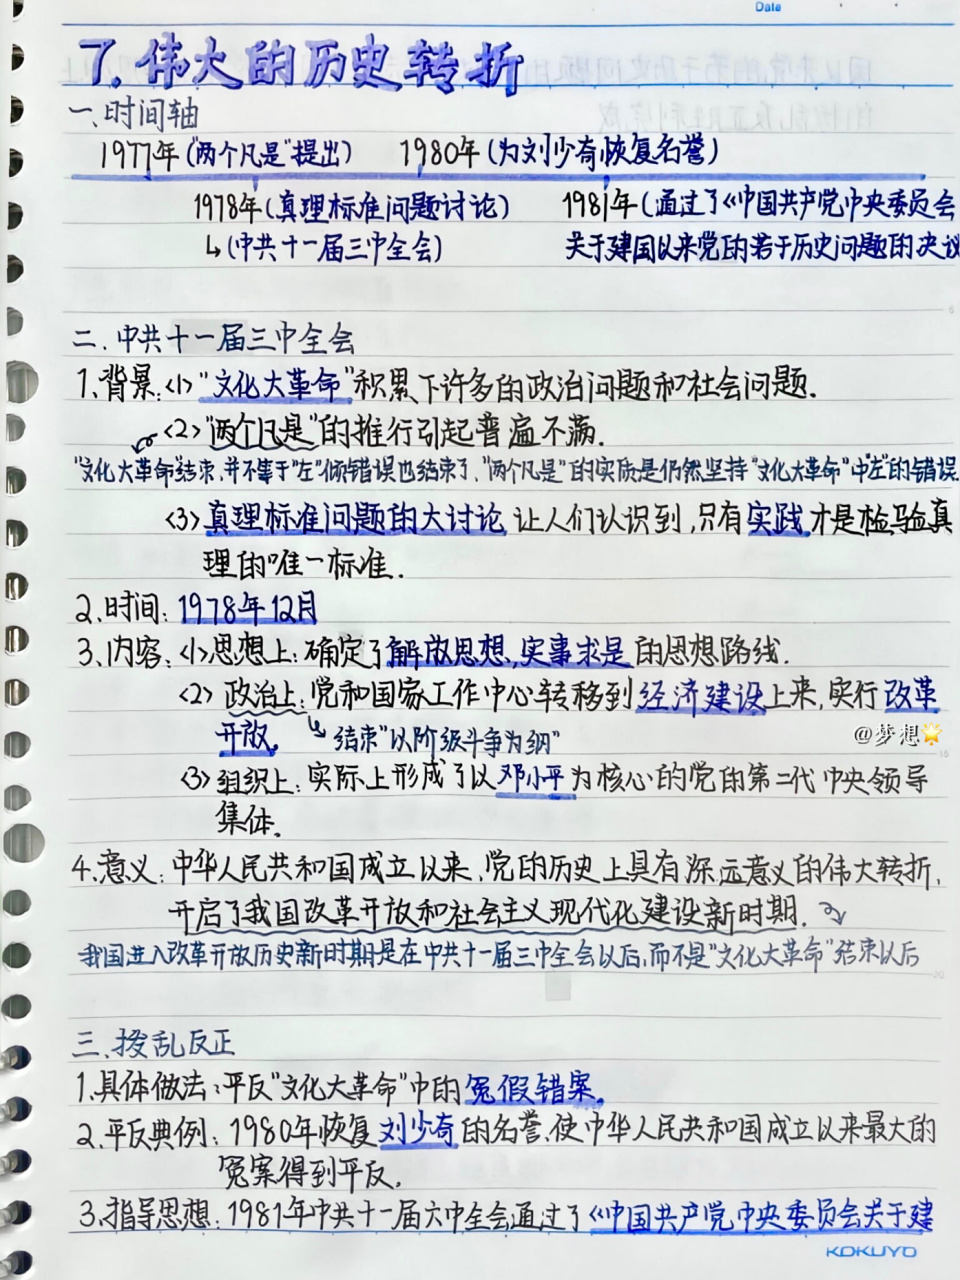 Date
7.伟大的历史转折
一.时间轴
1977年("两个凡是"提出) 1980年(为刘少奇恢复名誉)
1978年(真理标准问题讨论) 1981年(通过了《中国共产党中央委员会
↳(中共十一届三中全会) 关于建国以来党的若干历史问题的决议
二.中共十一届三中全会
1.背景:<1>"文化大革命"积累下许多的政治问题和社会问题.
<2>"两个凡是"的推行引起普遍不满.
"文化大革命"结束,并不等于"左"倾错误也结束了,"两个凡是"的实质是仍然坚持"文化大革命"中"左"的错误.
<3>真理标准问题的大讨论让人们认识到,只有实践才是检验真
理的唯一标准.
2.时间:1978年12月
3.内容:<1>思想上:确定了解放思想,实事求是的思想路线.
<2>政治上:党和国家工作中心转移到经济建设上来,实行改革
开放. 结束"以阶级斗争为纲"
@梦想🌟
<3>组织上:实际上形成了以邓小平为核心的党的第二代中央领导
集体.
4.意义:中华人民共和国成立以来,党的历史上具有深远意义的伟大转折,
开启了我国改革开放和社会主义现代化建设新时期.
我国进入改革开放历史新时期是在中共十一届三中全会以后,而不是"文化大革命"结束以后
三.拨乱反正
1.具体做法:平反"文化大革命"中的冤假错案.
2.平反典例:1980年恢复刘少奇的名誉,使中华人民共和国成立以来最大的
冤案得到平反.
3.指导思想:1981年中共十一届六中全会通过了《中国共产党中央委员会关于建
KOKUYO